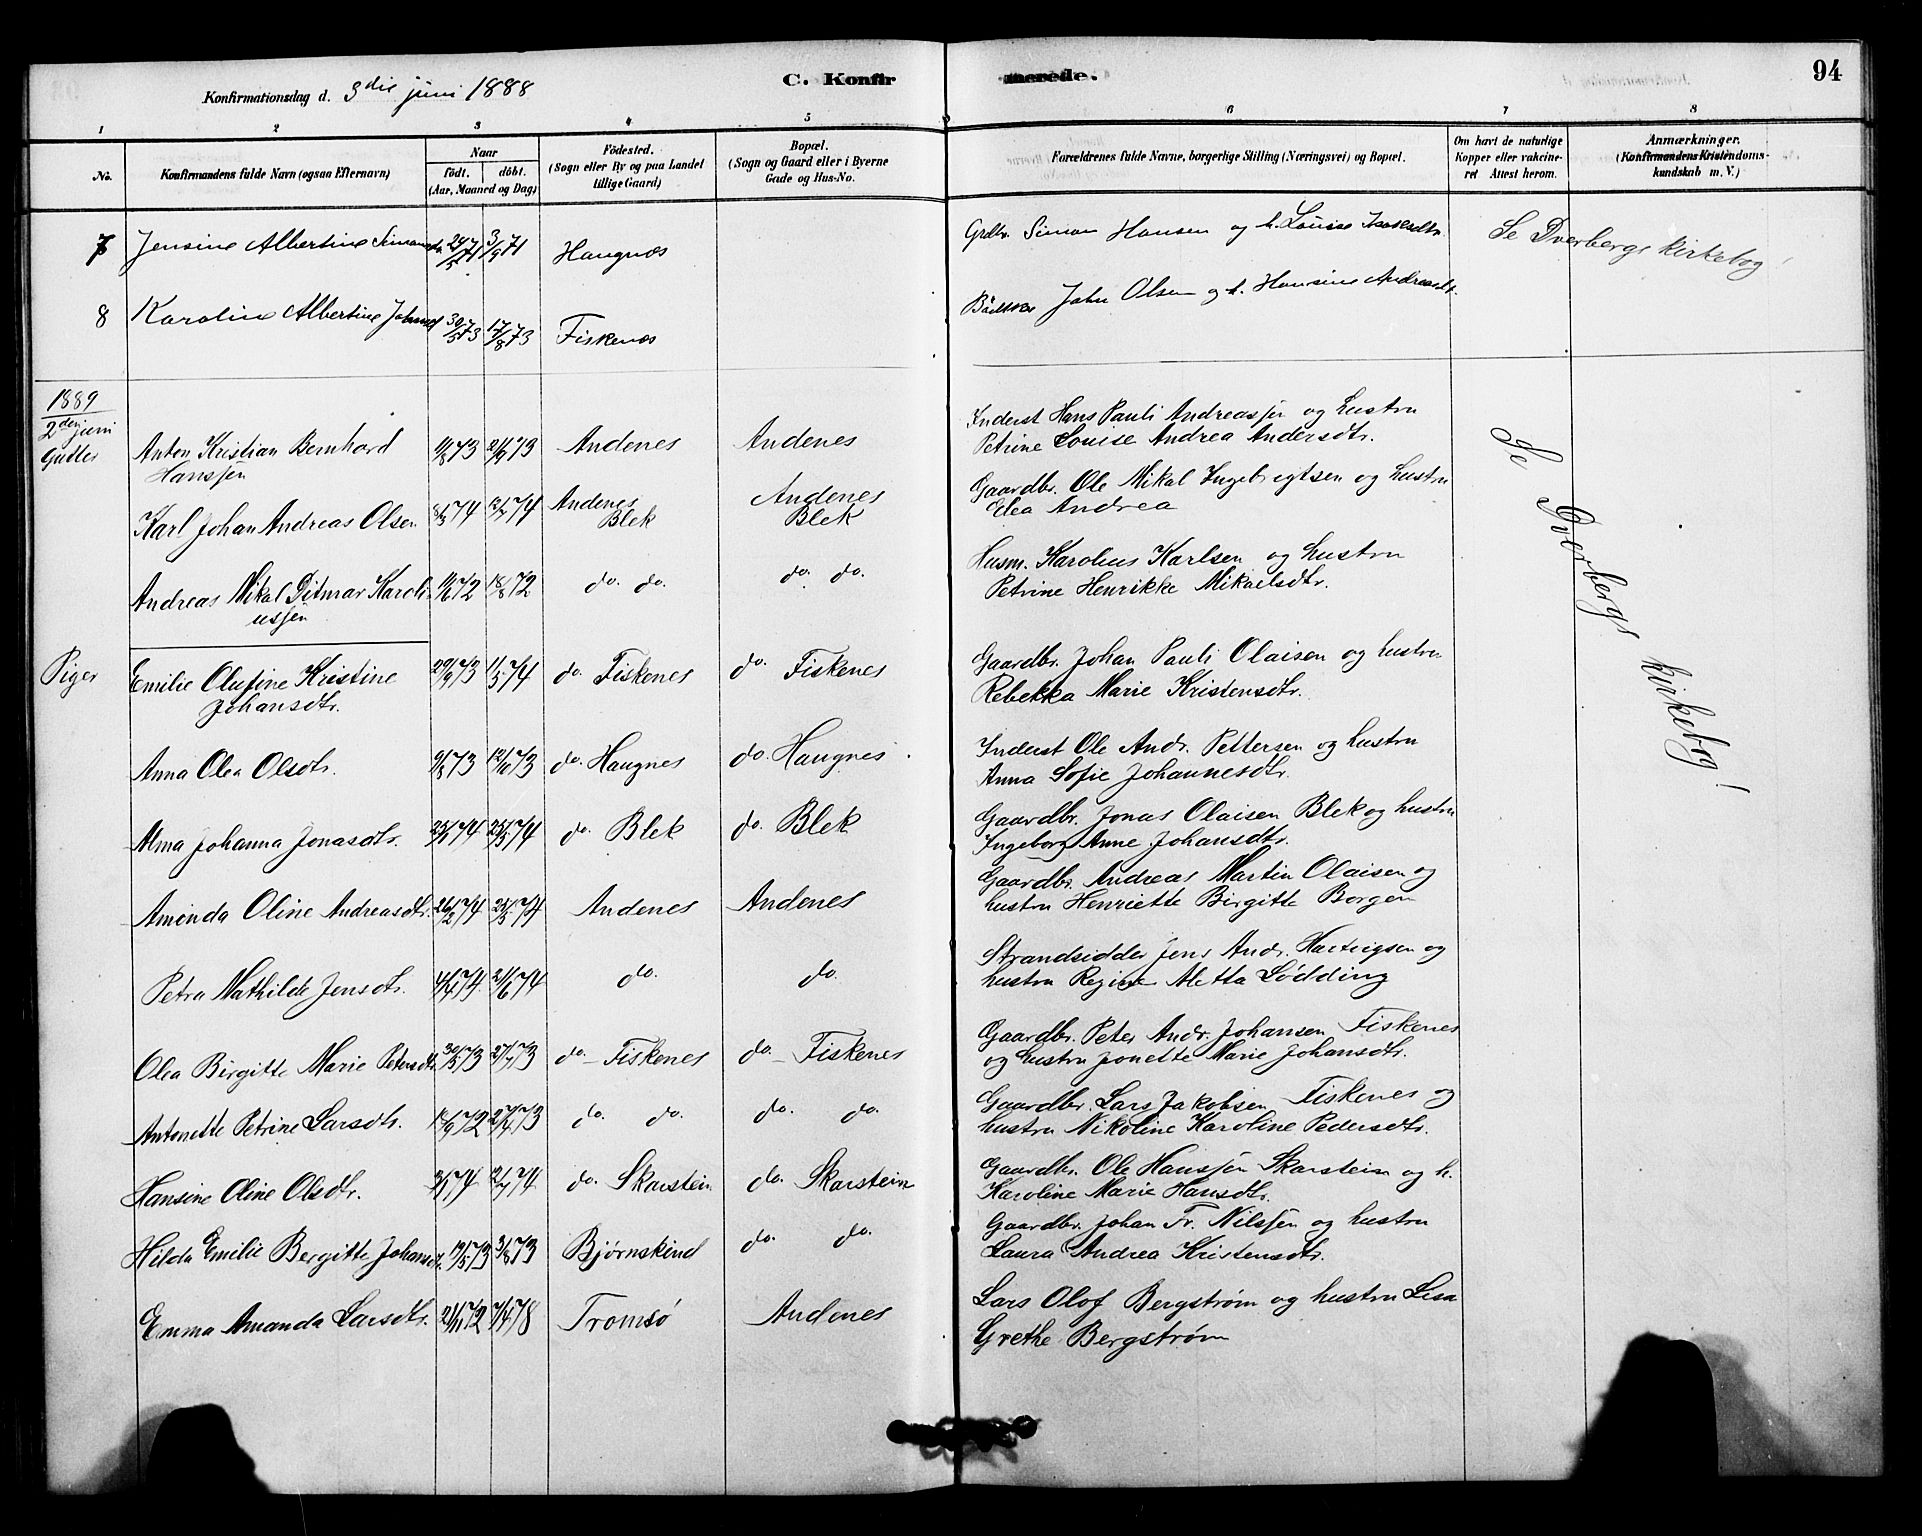 Konfirmationsdag d. 3die juni 1888
C. Konfirmerede.
94
1 2 3 4 5 6 7 8
No. Konfirmandens fulde Navn (ogsaa Efternavn) Naar født. døbt. (Aar, Maaned og Dag) Födested. (Sogn eller By og paa Landet tillige Gaard) Bopæl. (Sogn og Gaard eller i Byerne Gade og Hus-No. Forældrenes fulde Navne, borgerlige Stilling (Næringsvei) og Bopæl. Om havt de naturlige Kopper eller vakcineret Attest herom. Anmærkninger. (Konfirmandens Kristendomskundskab m. V.)
7 Jensine Albertine 71 3/9 71 Haugnæs Grdbr. Simon Hansen og h. Louise Se Dverbergs kirkebog
8 Karoline Albertine 30/5 73 17/8 73 Fiskenæs John Olsen og h. Hansine Andreasdtr.
1889
2den juni
Gutter
Anton Kristian Bernhard Hanssen 73 73 Andenes Andenes Inderst Hans Pauli Andreassen og hustru
Petrine Louise Andrea Andersdtr.
Karl Johan Andreas Olsen 74 12/7 74 Andenes Blek Andenes Blek Gaardbr. Ole Mikal Ingebrigtsen og hustru
Elea Andrea
Andreas Mikal Ditmar Karoliussen 11/6 72 18/8 72 do. do. do. do. Husm. Karolius Karlsen og hustru
Petrine Henrikke Mikaelsdtr.
Piger
Emilie Olufine Kristine Johansdtr. 29/9 73 11/5 74 do. Fiskenes do. Fiskenes Gaardbr. Johan Pauli Olaisen og hustru
Rebekka Marie Kristensdtr.
Anna Olea Olsdtr. 9/8 73 12/10 73 do. Haugnes do. Haugnes Inderst Ole Andr. Pettersen og hustru
Anna Sofie Johannesdtr.
Alma Johanna Jonasdtr. 74 74 do. Blek do. Blek Gaardbr. Jonas Olaisen Blek og hustru
Ingeborg Anne Johansdtr.
Amanda Oline Andreasdtr. 26/2 74 74 Andenes Andenes Gaardbr. Andreas Martin Olaisen og
hustru Henriette Birgitte Borgen
Petra Mathilde Jensdtr. 74 21/6 74 do. do. Strandsidder Jens Andr. Hartvigsen og
hustru Regine Aletta Lødding
Olea Birgitte Marie Petersdtr. 30/5 73 27/7 73 do. Fiskenes do. Fiskenes Gaardbr. Peter Andr. Johansen Fiskenes
og hustru Jonette Marie Johansdtr.
Antonette Petrine Larsdtr. 72 73 do. do. do. do. Gaardbr. Lars Jakobsen Fiskenes og
hustru Nikoline Karoline Pedersdtr.
Hansine Oline Olsdtr. 74 74 do. Skarstein do. Skarstein Gaardbr. Ole Hanssen Skarstein og h.
Karoline Marie Hansdtr.
Hilda Emilie Bergitte Johansdtr. 19/5 73 3/8 73 Bjørnskind do. do. Gaardbr. Johan Fr. Nilssen og hustru
Laura Andrea Kristensdtr.
Emma Amanda Larsdtr. 72 78 Tromsø Andenes Lars Olof Bergstrøm og hustru Lisa
Grethe Bergstrøm
Se Dverbergs kirkebog!